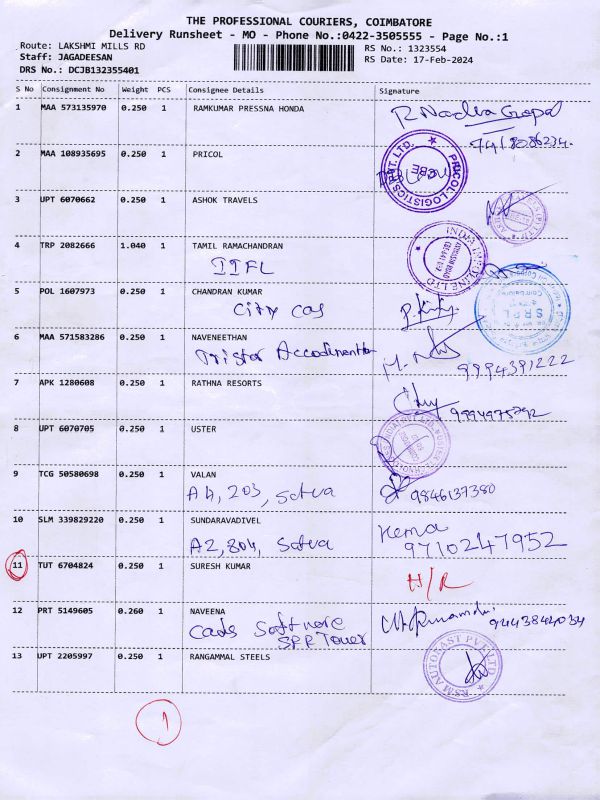 THE PROFESSIONAL COURIERS, COIMBATORE
Delivery Runsheet - MO - Phone No.:0422-3505555 - Page No.:1
Route: LAKSHMI MILLS RD
RS No.: 1323554
Staff: JAGADEESAN
RS Date: 17-Feb-2024
DRS No.: DCJB132355401
S No Consignment No Weight PCS Consignee Details Signature
1 MAA 573135970 0.250 1 RAMKUMAR PRESSNA HONDA
2 MAA 108935695 0.250 1 PRICOL
PRICOL LOGISTICS PVT. LTD.
CBE
3 UPT 6070662 0.250 1 ASHOK TRAVELS
4 TRP 2082666 1.040 1 TAMIL RAMACHANDRAN
IIFL
5 POL 1607973 0.250 1 CHANDRAN KUMAR
City Cas
SRPL
6 MAA 571583286 0.250 1 NAVENEETHAN
Tristar
9994391222
7 APK 1280608 0.250 1 RATHNA RESORTS
9994975292
8 UPT 6070705 0.250 1 USTER
9 TCG 50580698 0.250 1 VALAN
A4, 203, Satva
9846137380
10 SLM 339829220 0.250 1 SUNDARAVADIVEL
A2, 804, Satva
Hema
9710247952
11 TUT 6704824 0.250 1 SURESH KUMAR
H/R
12 PRT 5149605 0.260 1 NAVEENA
Cads Software
SPR Tower
9443844034
13 UPT 2205997 0.250 1 RANGAMMAL STEELS
RSM AUTOKAST PVT LTD
1